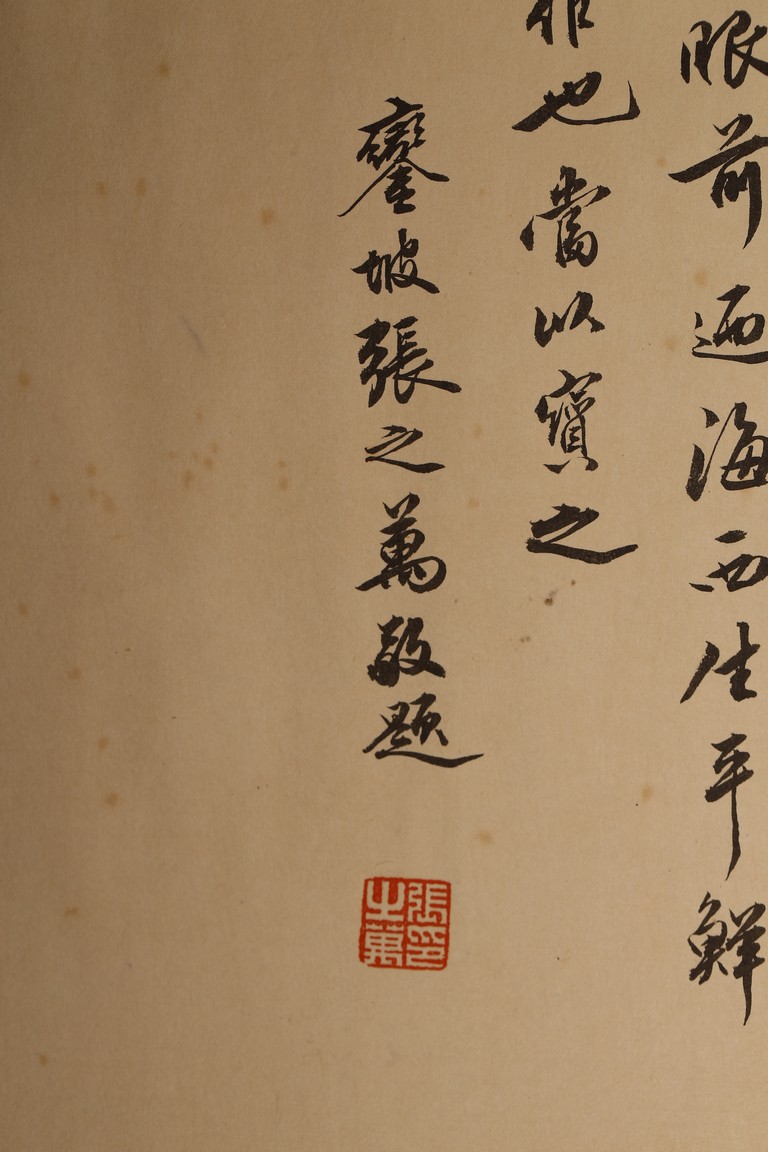 眼前迺海西生平鮮
也當以寶之
鑾坡張之萬敬題
張印
之萬